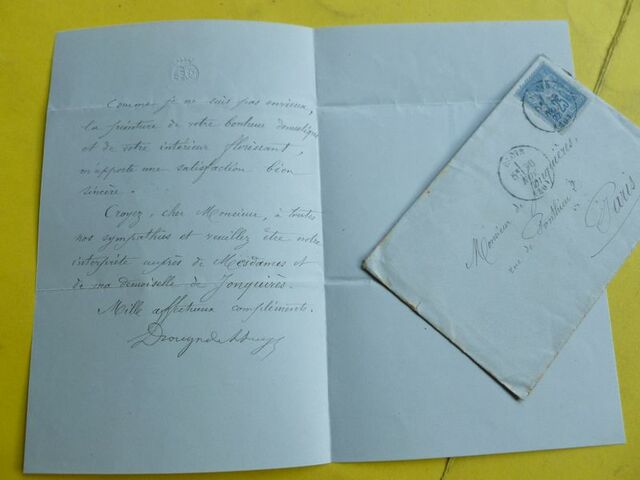 Comme je ne suis pas envieux,
la peinture de votre bonheur domestique
et de votre intérieur florissant,
m'apporte une satisfaction bien
sincère.
Croyez, cher Monsieur, à toutes
nos sympathies et veuillez être notre
interprète auprès de Mesdames et
de ma demoiselle de Jonquières.
Mille affectueux compliments.
Drouyn de Lhuys
Monsieur de Jonquières,
rue de Ponthieu
Paris